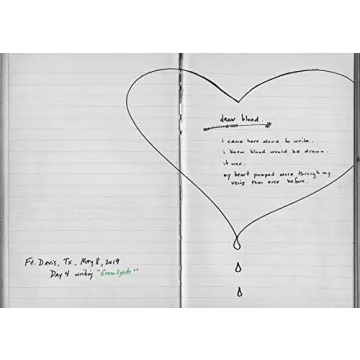 Ft. Davis, Tx. May 8, 2019
Day 4 writing "Greenlights"
dear blood.
i came here alone to write.
i knew blood would be drawn.
it was.
my heart pumped more through my
veins than ever before.